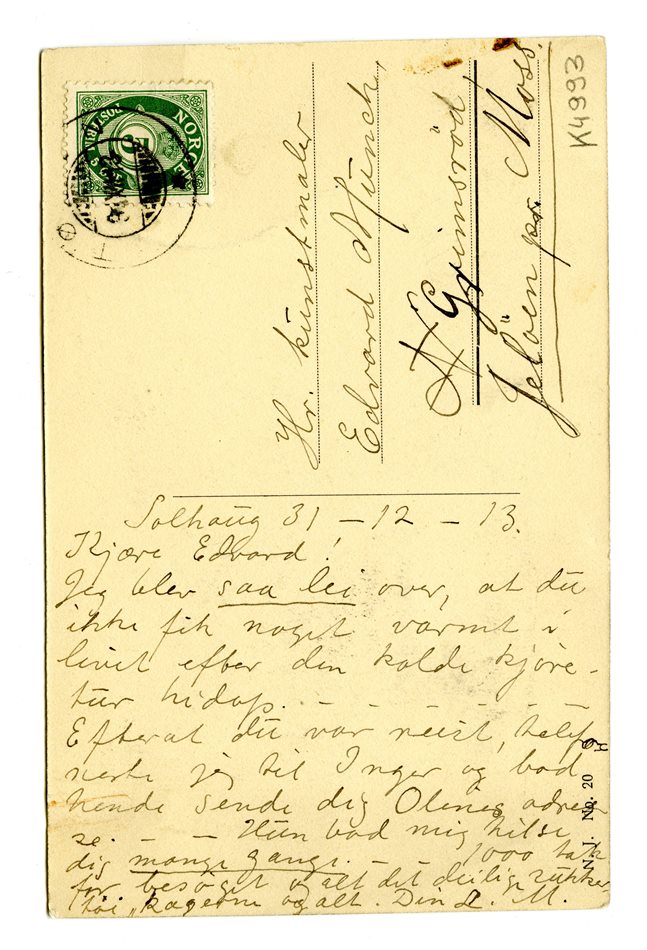 K4993
NORGE
5
Hr. kunstmaler
Edvard Munch,
Grimsröd
Jelöen pr. Moss.
Solhaug 31 – 12 – 13.
Kjære Edvard!
Jeg blev saa lei over, at du
ikke fik noget varmt i
livet efter den kolde kjøre-
tur hidop. – – – – – –
Efterat du var reist, telefo
nerte jeg til Inger og bad
hende sende dig Olines adres
se. – – Hun bad mig hilse
dig mange gange. – – 1000 tak
for besøget og alt det deilige sukker
töi, kagerne og alt. Din L. M.
N. J. No. 20